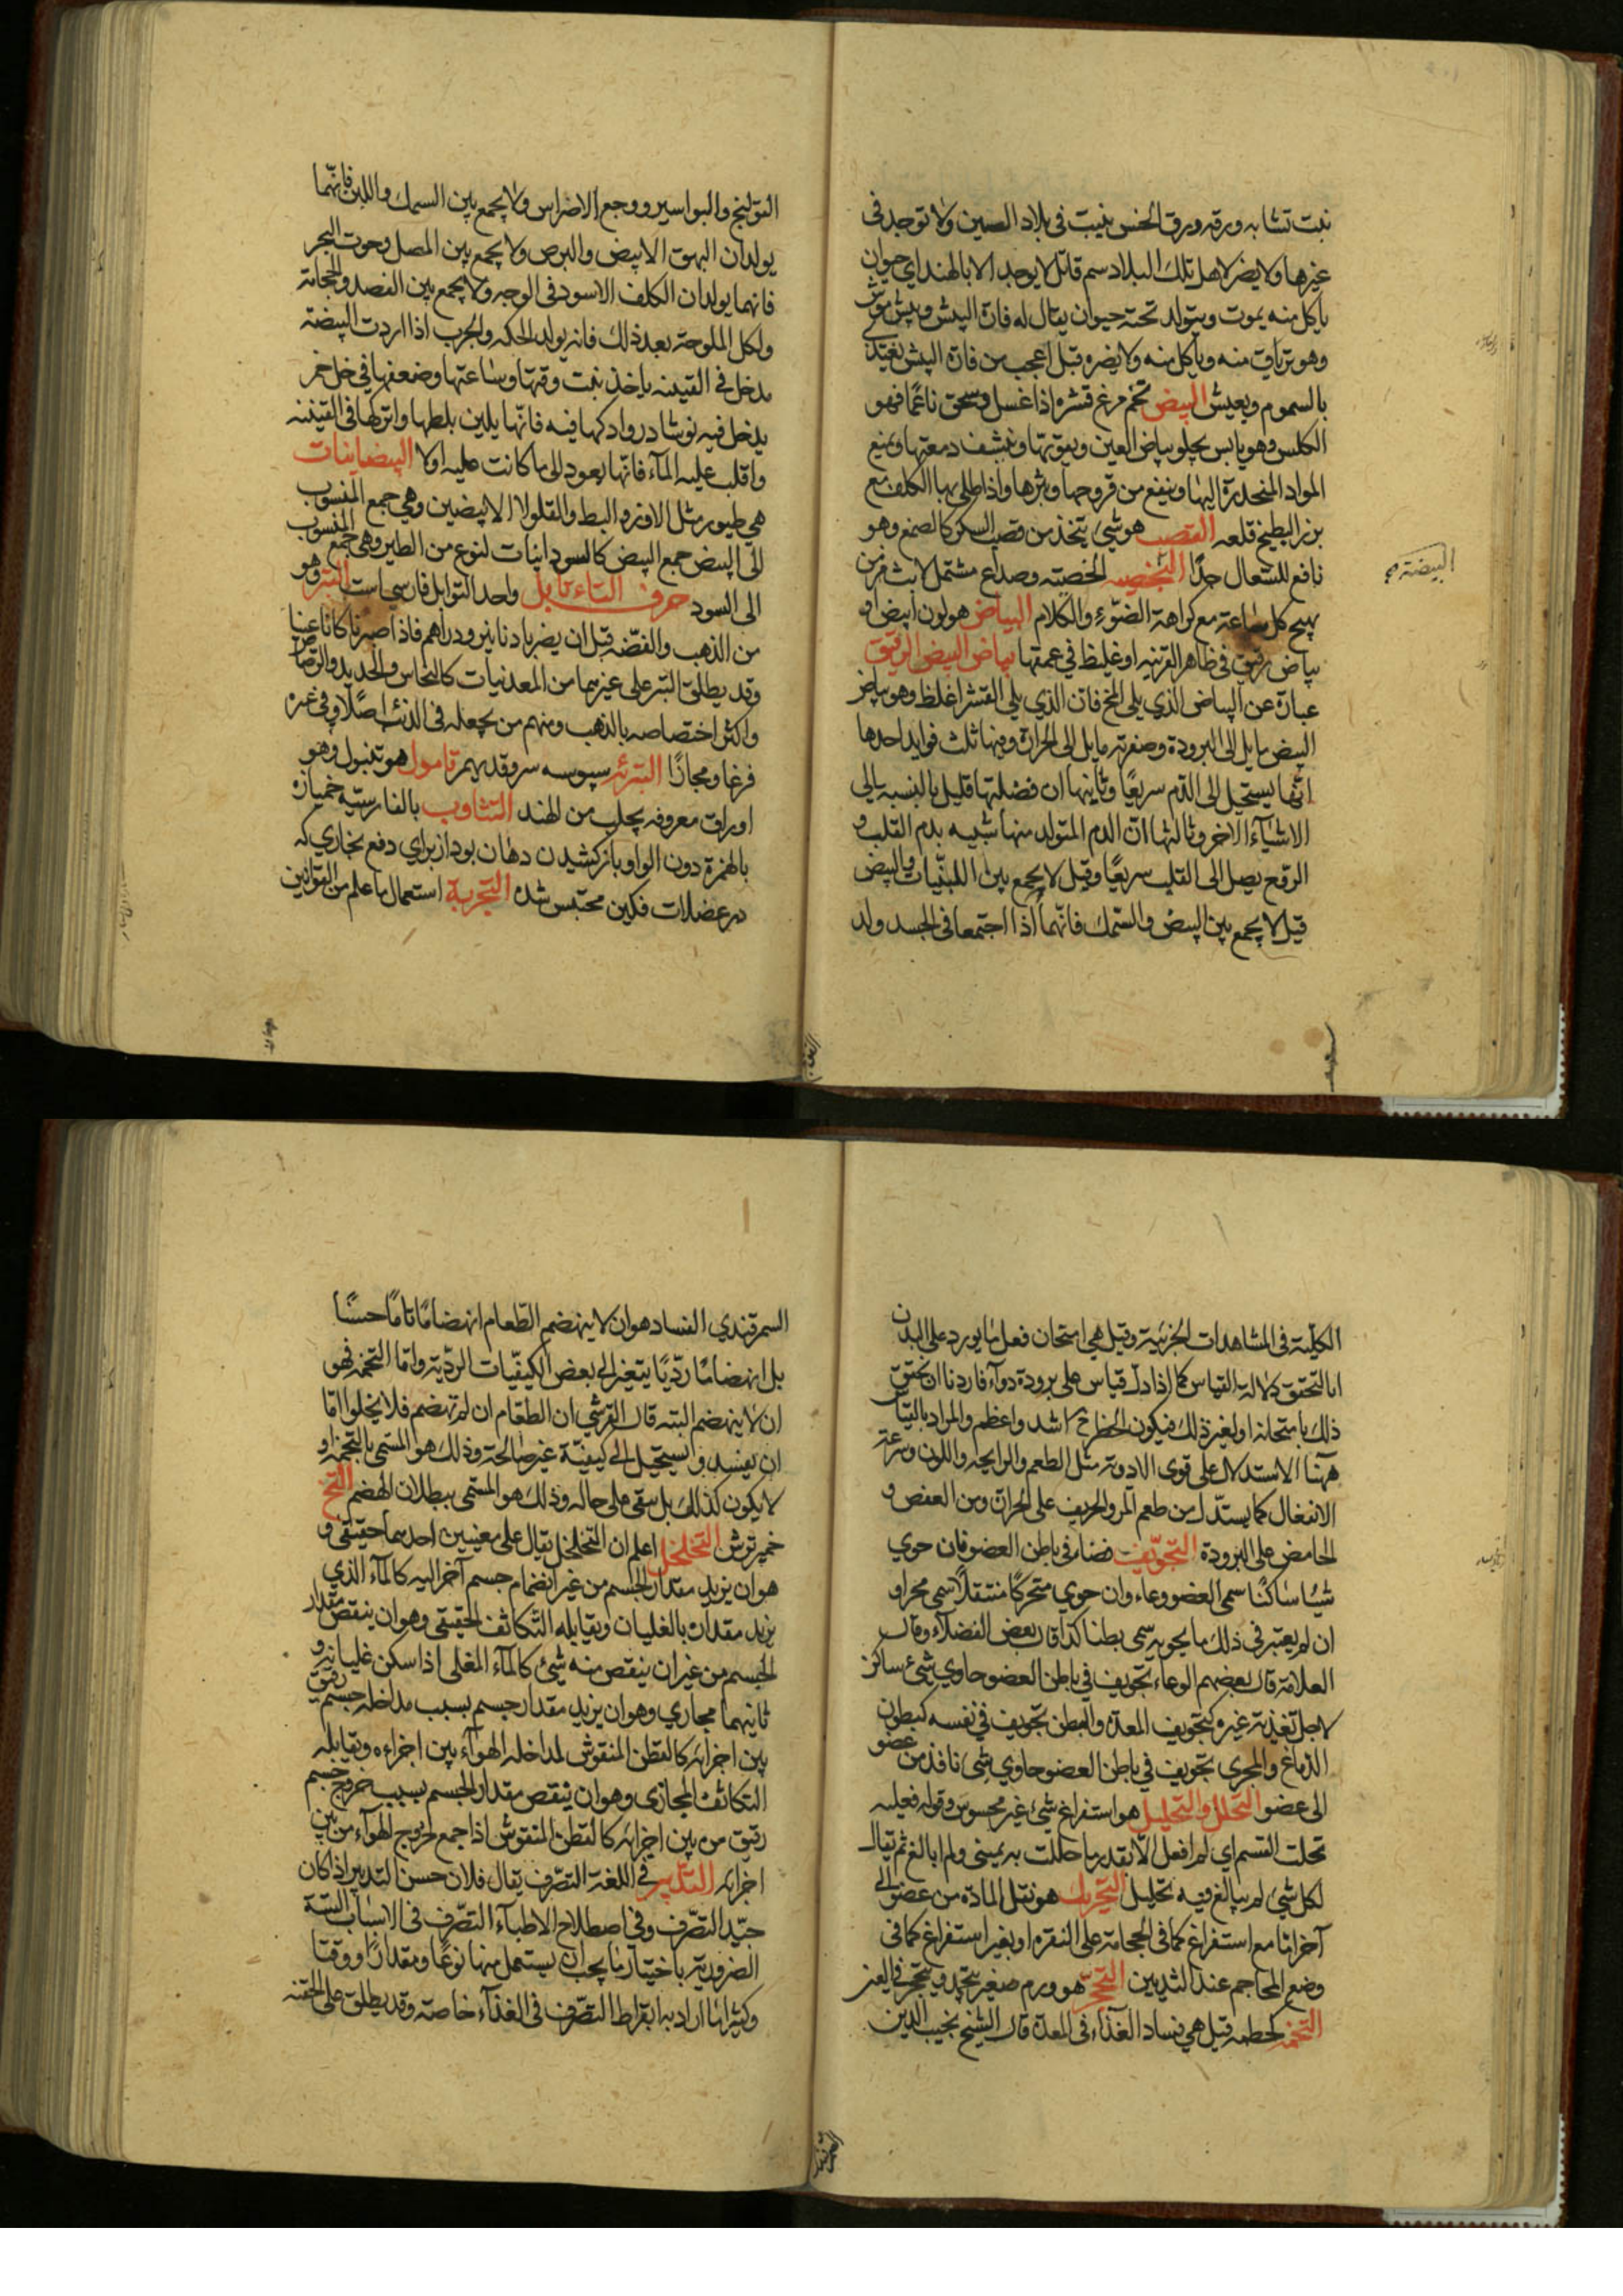 نبت تشابه ورقه ورق الخس ينبت في بلاد الصين ولا توجد في
غيرها ولا يضر لاهل تلك البلاد سم قاتل لا يوجد الا بالهند اي حيوان
ياكل منه يموت ويتولد تحته حيوان يقال له فارة البيش وبيش موش
وهو ترياق منه وياكل منه ولا يضره قيل اعجب من فارة البيش يغتذي
بالسموم ويعيش البيض تخم مرغ قشره اذا غسل وسحق ناعما فهو
الكلس وهو يابس يجلو بياض العين ويقويها وينشف دمعتها ويمنع
المواد المنحدرة اليها وينفع من قروحها وبثرها واذا طلي بها الكلف مع
بزر البطيخ قلعه القصب هو شيء يتخذ من قصب السكر كالصمغ وهو
نافع للسعال جدا الخصية وصداع مشتمل لابث مزمن
يهيج كل ساعة مع كراهة الضوء والكلام البياض هو لون ابيض او
بياض رقيق في ظاهر القرنية او غليظ في عمقها بياض البيض الرقيق
عبارة عن البياض الذي يلي المخ فان الذي يلي القشر اغلظ وهو بياض
البيض مايل الى البرودة وصفرته مايل الى الحرارة وفيها ثلث فوايد احدها
انها يستحيل الى الدم سريعا وثانيها ان فضلتها قليل بالنسبة الى
الاشياء الاخر وثالثها ان الدم المتولد منها شبيه بدم القلب و
الروح يصل الى القلب سريعا وقيل لا يجمع بين اللبنيات والبيض
قيل لا يجمع بين البيض والسمك فانهما اذا اجتمعا في الجسد ولد
البيضة
القولنج والبواسير ووجع الاضراس ولا يجمع بين السمك واللبن فانهما
يولدان البهق الابيض والبرص ولا يجمع بين المصل وحوت البحر
فانهما يولدان الكلف الاسود في الوجه ولا يجمع بين الفصد والحجامة
ولكل الملوحة بعد ذلك فانه يولد الحكه والجرب اذا اردت البيضة
مدخل في القنينه ياخذ بنت وقتها وساعتها وضعفها في خل خمر
يدخل فيه نوشادر واد كها فيه فانها يلين بلطها واتركها في القنينه
واقلب عليه الماء فانها يعود الى ما كانت عليه اولا البيضاينات
هي طيور مثل الاوز والبط والقلولا الابيضين وهي جمع المنسوب
الى البيض جمع البيض كالسوداينات لنوع من الطير وهي جمع المنسوب
الى السود حرف التاء تابل واحد التوابل فارسي است التبر وهو
من الذهب والفضة قبل ان يضربا دنانير ودراهم فاذا ضربا كانا عينا
وقد يطلق التبر على غيرهما من المعدنيات كالنحاس والحديد والرصاص
واكثر اختصاصه بالذهب ومنهم من يجعله في الذهب اصلا وفي غيره
فرعا ومجازا سبوسه سر تامول هو تنبول وهو
اوراق معروفه يجلب من الهند التثاوب بالفارسية خميازه
بالهمزة دون الواو باز كشيدن دهان بود از براي دفع بخاري كه
در عضلات فكين محتبس شده التجربة استعمال ما علم من القوانين
الكلية في المشاهدات الجزئية وقيل هي امتحان فعل ما يورد على البدن
اما لتحقق دلالة القياس كما اذا دل قياس على برودة دواء فاردنا ان نحقق
ذلك بامتحانه او لغير ذلك فيكون الخطر ح اشد واعظم والمراد بالقياس
ههنا الاستدلال على قوى الادوية مثل الطعم والرايحه واللون وسرعة
الانفعال كما يستدل من طعم المر والحريف على الحرارة ومن العفص و
الحامض على البرودة التجويف فضاء في باطن العضو فان حوي
شيئا ساكنا سمي العضو وعاء وان حوي متحركا منتقلا سمي مجرا و
ان لم يعتبر في ذلك ما يحويه سمي بطنا كذا قال بعض الفضلاء وقال
العلامة قال بعضهم الوعاء تجويف في باطن العضو حاوي شيء ساكن
لاجل تغذية غيره كتجويف المعدة والبطن تجويف في نفسه كبطون
الدماغ والمجري تجويف في باطن العضو حاوي شيء نافذ من عضو
الى عضو التحلل والتحليل هو استفراغ شيء غير محسوس وقوله فعليه
تحلت القسم اي لم افعل الا بقدر ما حللت به يميني ولم ابالغ ثم يقال
لكل شيء لم يبالغ فيه تحليل التحريك هو نقل المادة من عضو الى
آخر اما مع استفراغ كما في الحجامة على النقره او بغير استفراغ كما في
وضع المحاجم عند الثديين التحجر هو ورم صغير يتحجر في العين
التخمة كحطمه قيل هي فساد الغذاء في المعدة قال الشيخ نجيب الدين
السمرقندي الفساد هو ان لا ينهضم الطعام انهضاما تاما حسنا
بل انهضاما رديا يتغير الى بعض الكيفيات الردية واما التخمة فهو
ان لا ينهضم البته قال القرشي ان الطعام ان لم تهضم فلا يخلوا اما
ان يفسد ويستحيل الى كيفية غير صالحة وذلك هو المسمى بالتخمة او
لا يكون كذلك بل يبقى على حاله وذلك هو المسمى ببطلان الهضم التخ
خمير ترش التخلخل اعلم ان التخلخل يقال على معنيين احدهما حقيقي و
هو ان يزيد مقدار الجسم من غير انضمام جسم آخر اليه كالماء الذي
يزيد مقداره بالغليان ويقابله التكاثف الحقيقي وهو ان ينقص مقدار
الجسم من غير ان ينقص منه شيء كالماء المغلى اذا سكن غليانه و
ثانيهما مجازي وهو ان يزيد مقدار جسم بسبب مداخلة جسم رقيق
بين اجزائه كالقطن المنفوش لمداخلة الهواء بين اجزاءه ويقابله
التكاثف المجازي وهو ان ينقص مقدار الجسم بسبب خروج جسم
رقيق من بين اجزائه كالقطن المنفوش اذا جمع لخروج الهواء من بين
اجزائه التدبير في اللغة التصرف يقال فلان حسن التدبير اذ كان
جيد التصرف وفي اصطلاح الاطباء التصرف في الاسباب الستة
الضرورية باختيار ما يجب ان يستعمل منها نوعا ومقدارا ووقتا
وكثيرا ما اراد به ابقراط التصرف في الغذاء خاصة وقد يطلق على الحقنه